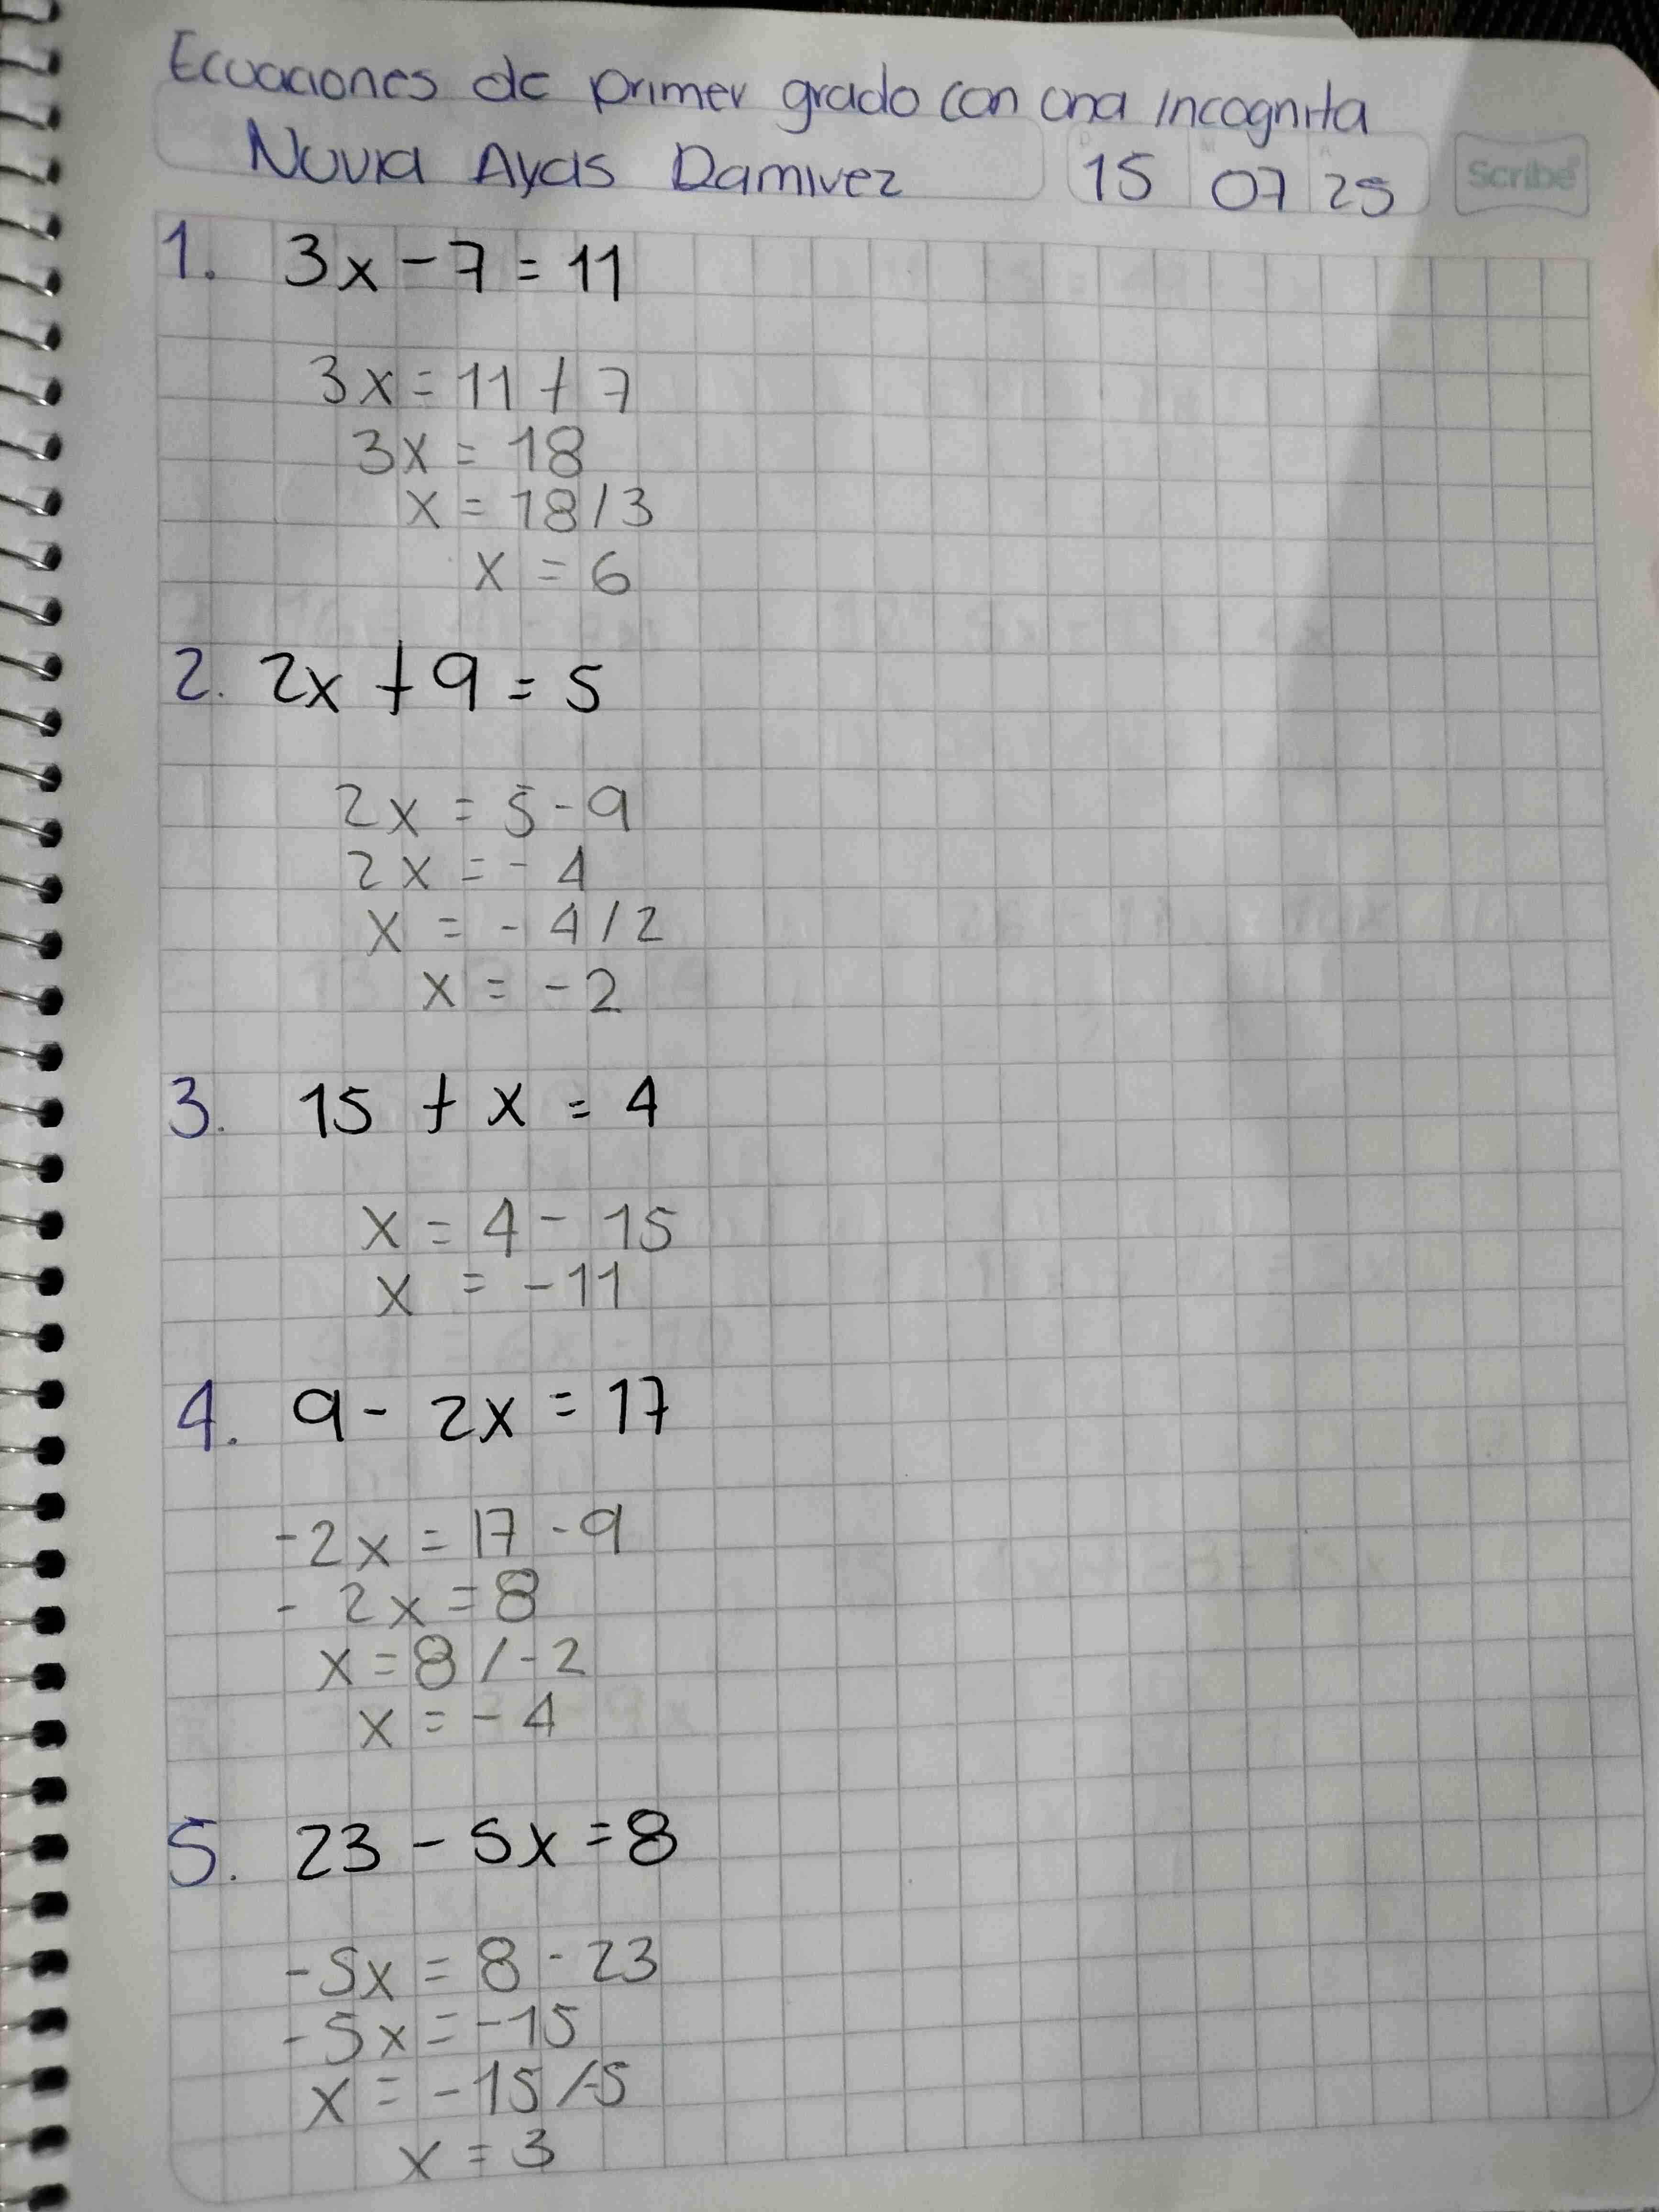 Ecuaciones de primer grado con una incognita
Nuvia Ayas Ramirez 15 07 25 Scribe
1. 3x - 7 = 11
3x = 11 + 7
3x = 18
x = 18 / 3
x = 6
2. 2x + 9 = 5
2x = 5 - 9
2x = - 4
x = - 4 / 2
x = - 2
3. 15 + x = 4
x = 4 - 15
x = - 11
4. 9 - 2x = 17
-2x = 17 - 9
- 2x = 8
x = 8 / - 2
x = - 4
5. 23 - 5x = 8
-5x = 8 - 23
-5x = -15
x = -15 / -5
x = 3